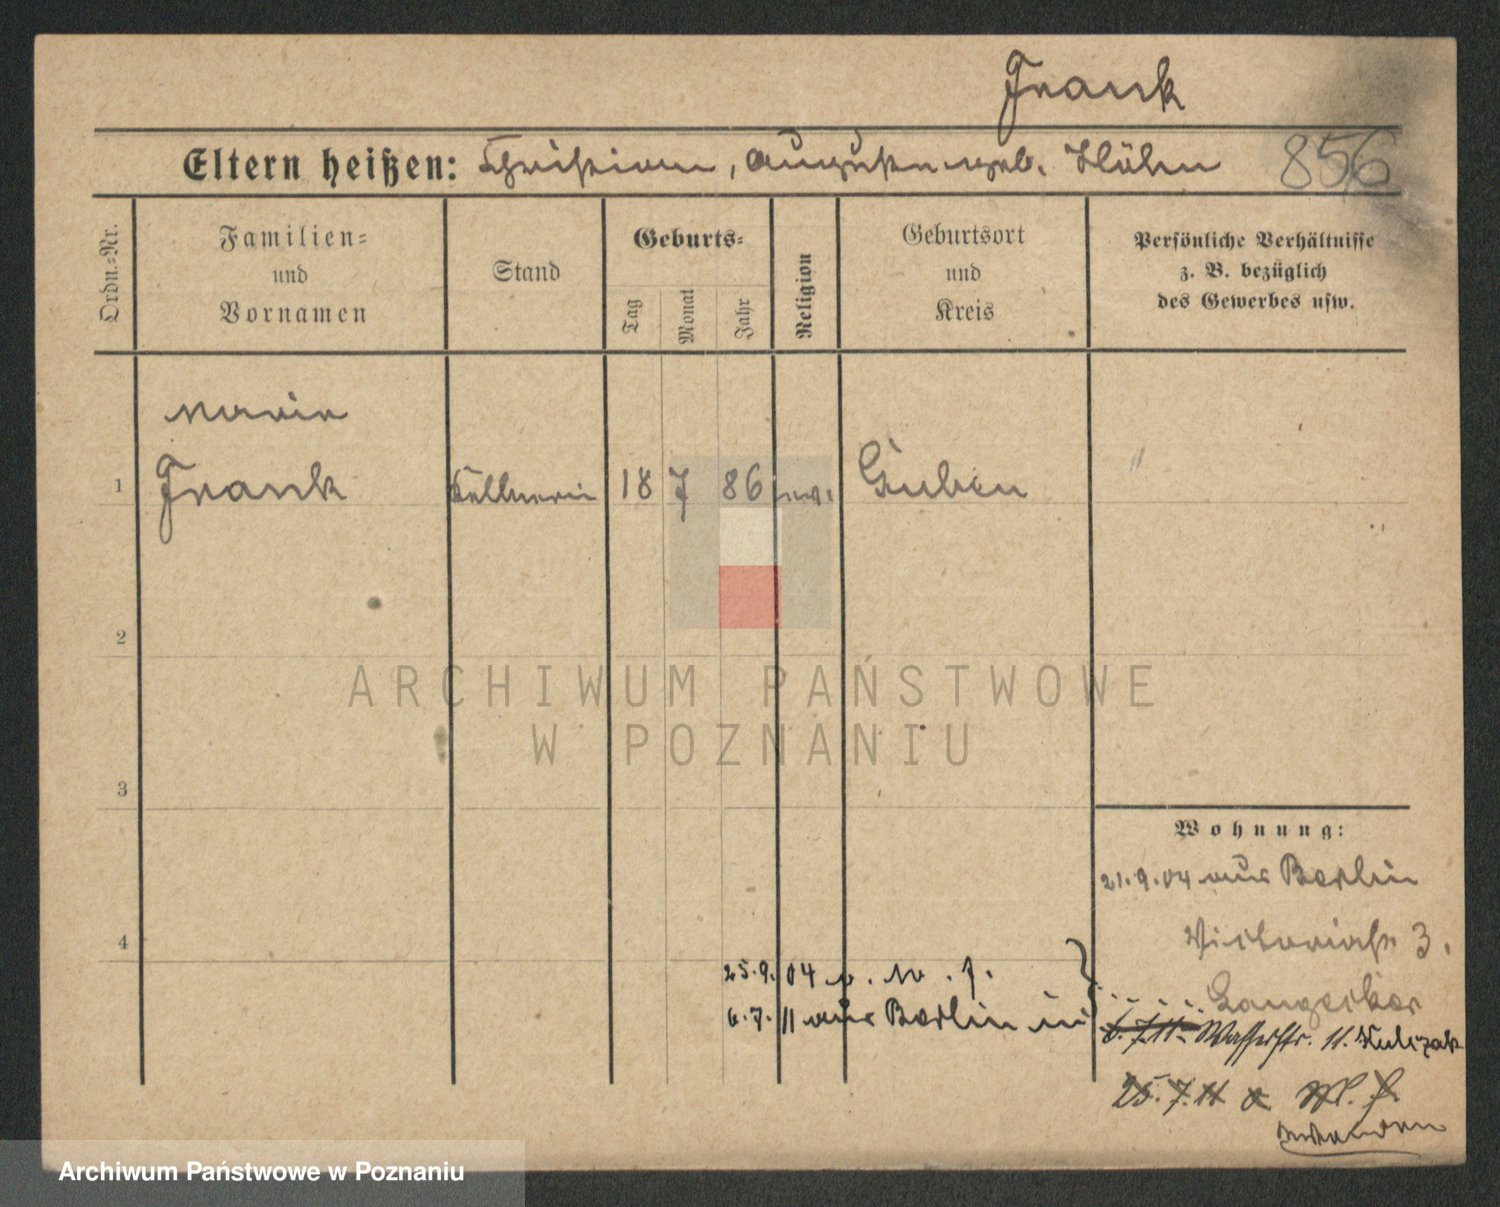 Frank
Eltern heißen: Christian, Auguste geb. Höhn
856
Ordn.-Nr.
Familien-
und
Vornamen
Stand
Geburts-
Tag
Monat
Jahr
Religion
Geburtsort
und
Kreis
Persönliche Verhältnisse
z. B. bezüglich
des Gewerbes usw.
Marie
1 Frank Kellnerin 18 7 86 ev. Guben
2
3
4
Wohnung:
21.9.04 aus Berlin
Victoriastr. 3.
25.9.04 n.
6.7.11 aus Berlin in
6.7.11. Wasserstr. 11. Kulczak
25.7.11
ARCHIWUM PAŃSTWOWE
W POZNANIU
Archiwum Państwowe w Poznaniu